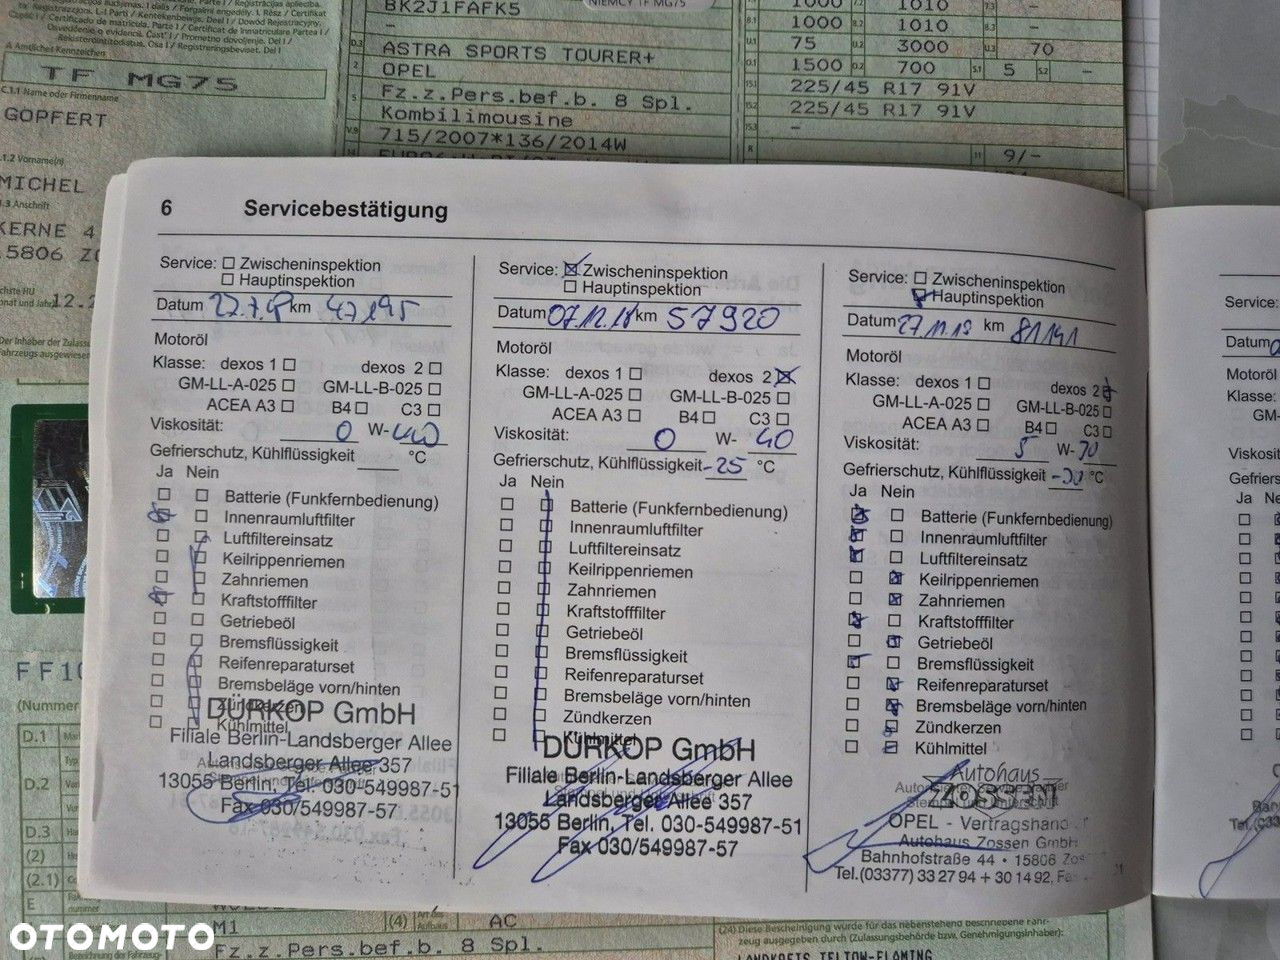 A Amtliches Kennzeichen
TF MG75
C.1.1 Name oder Firmenname
GÖPFERT
MICHEL
KERNE 4
BK2J1FAFK5
D.3 ASTRA SPORTS TOURER+
2 OPEL
5 Fz.z.Pers.bef.b. 8 Spl.
Kombilimousine
V.9 715/2007*136/2014W
1000 1010
8.1 1000 8.2 1010
U.1 75 U.2 3000 U.3 70
O.1 1500 O.2 700 S.1 5 S.2 -
15.1 225/45 R17 91V
15.2 225/45 R17 91V
15.3 -
R 11 9/-
6 Servicebestätigung
Service: Zwischeninspektion
Hauptinspektion
Datum 27.7.18 km 47195
Motoröl
Klasse: dexos 1 dexos 2
GM-LL-A-025 GM-LL-B-025
ACEA A3 B4 C3
Viskosität: 0 W-40
Gefrierschutz, Kühlflüssigkeit °C
Ja Nein
Batterie (Funkfernbedienung)
Innenraumluftfilter
Luftfiltereinsatz
Keilrippenriemen
Zahnriemen
Kraftstofffilter
Getriebeöl
Bremsflüssigkeit
Reifenreparaturset
Bremsbeläge vorn/hinten
Zündkerzen
Kühlmittel
DÜRKOP GmbH
Filiale Berlin-Landsberger Allee
Landsberger Allee 357
13055 Berlin, Tel. 030-549987-51
Fax 030/549987-57
Service: Zwischeninspektion
Hauptinspektion
Datum 07.12.18 km 57920
Motoröl
Klasse: dexos 1 dexos 2
GM-LL-A-025 GM-LL-B-025
ACEA A3 B4 C3
Viskosität: 0 W-40
Gefrierschutz, Kühlflüssigkeit -25 °C
Ja Nein
Batterie (Funkfernbedienung)
Innenraumluftfilter
Luftfiltereinsatz
Keilrippenriemen
Zahnriemen
Kraftstofffilter
Getriebeöl
Bremsflüssigkeit
Reifenreparaturset
Bremsbeläge vorn/hinten
Zündkerzen
Kühlmittel
DÜRKOP GmbH
Filiale Berlin-Landsberger Allee
Landsberger Allee 357
13055 Berlin, Tel. 030-549987-51
Fax 030/549987-57
Service: Zwischeninspektion
Hauptinspektion
Datum 27.11.19 km 81141
Motoröl
Klasse: dexos 1 dexos 2
GM-LL-A-025 GM-LL-B-025
ACEA A3 B4 C3
Viskosität: 5 W-30
Gefrierschutz, Kühlflüssigkeit -30 °C
Ja Nein
Batterie (Funkfernbedienung)
Innenraumluftfilter
Luftfiltereinsatz
Keilrippenriemen
Zahnriemen
Kraftstofffilter
Getriebeöl
Bremsflüssigkeit
Reifenreparaturset
Bremsbeläge vorn/hinten
Zündkerzen
Kühlmittel
Autohaus
Zossen
OPEL - Vertragshand
Autohaus Zossen GmbH
Bahnhofstraße 44 • 15806 Zos
Tel.(03377) 33 27 94 + 30 14 92,
Service:
Datum
Motoröl
Klasse:
Viskosi
Gefriers
Ja Ne
D.1
D.2
D.3
(2)
(2.1)
E
M1 (4) AC
Fz.z.Pers.bef.b. 8 Spl.
LANDKREIS TELTOW-FLÄMING
OTOMOTO